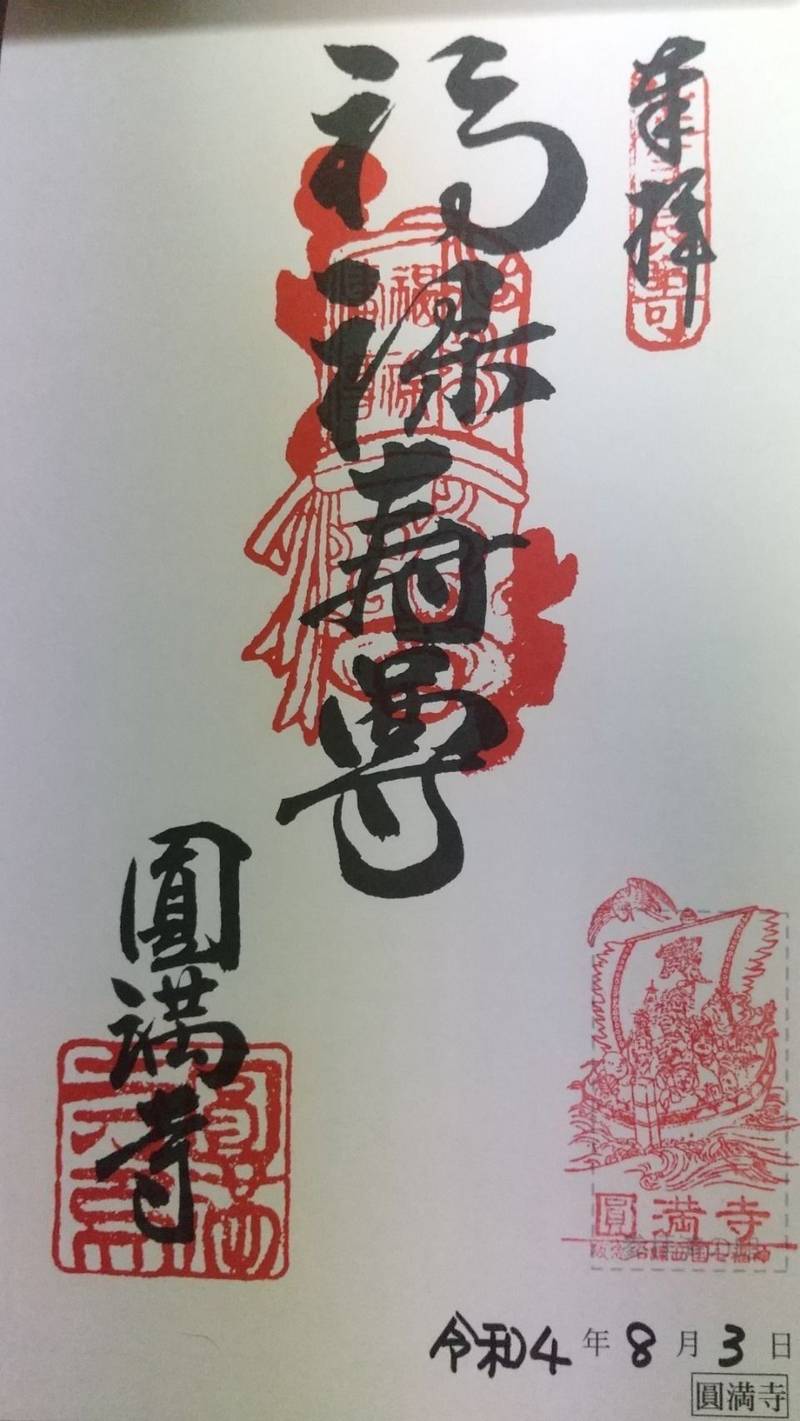 奉拝
福禄寿尊
圓満寺
圓満寺
令和4年8月3日
圓満寺